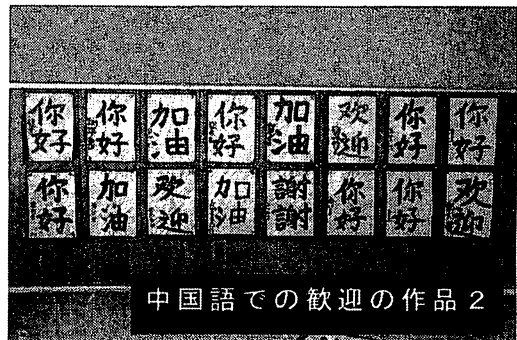 你好 你好 加油 你好 加油 欢迎 你好 你好
你好 加油 欢迎 加油 謝謝 你好 你好 欢迎
中国語での歓迎の作品2